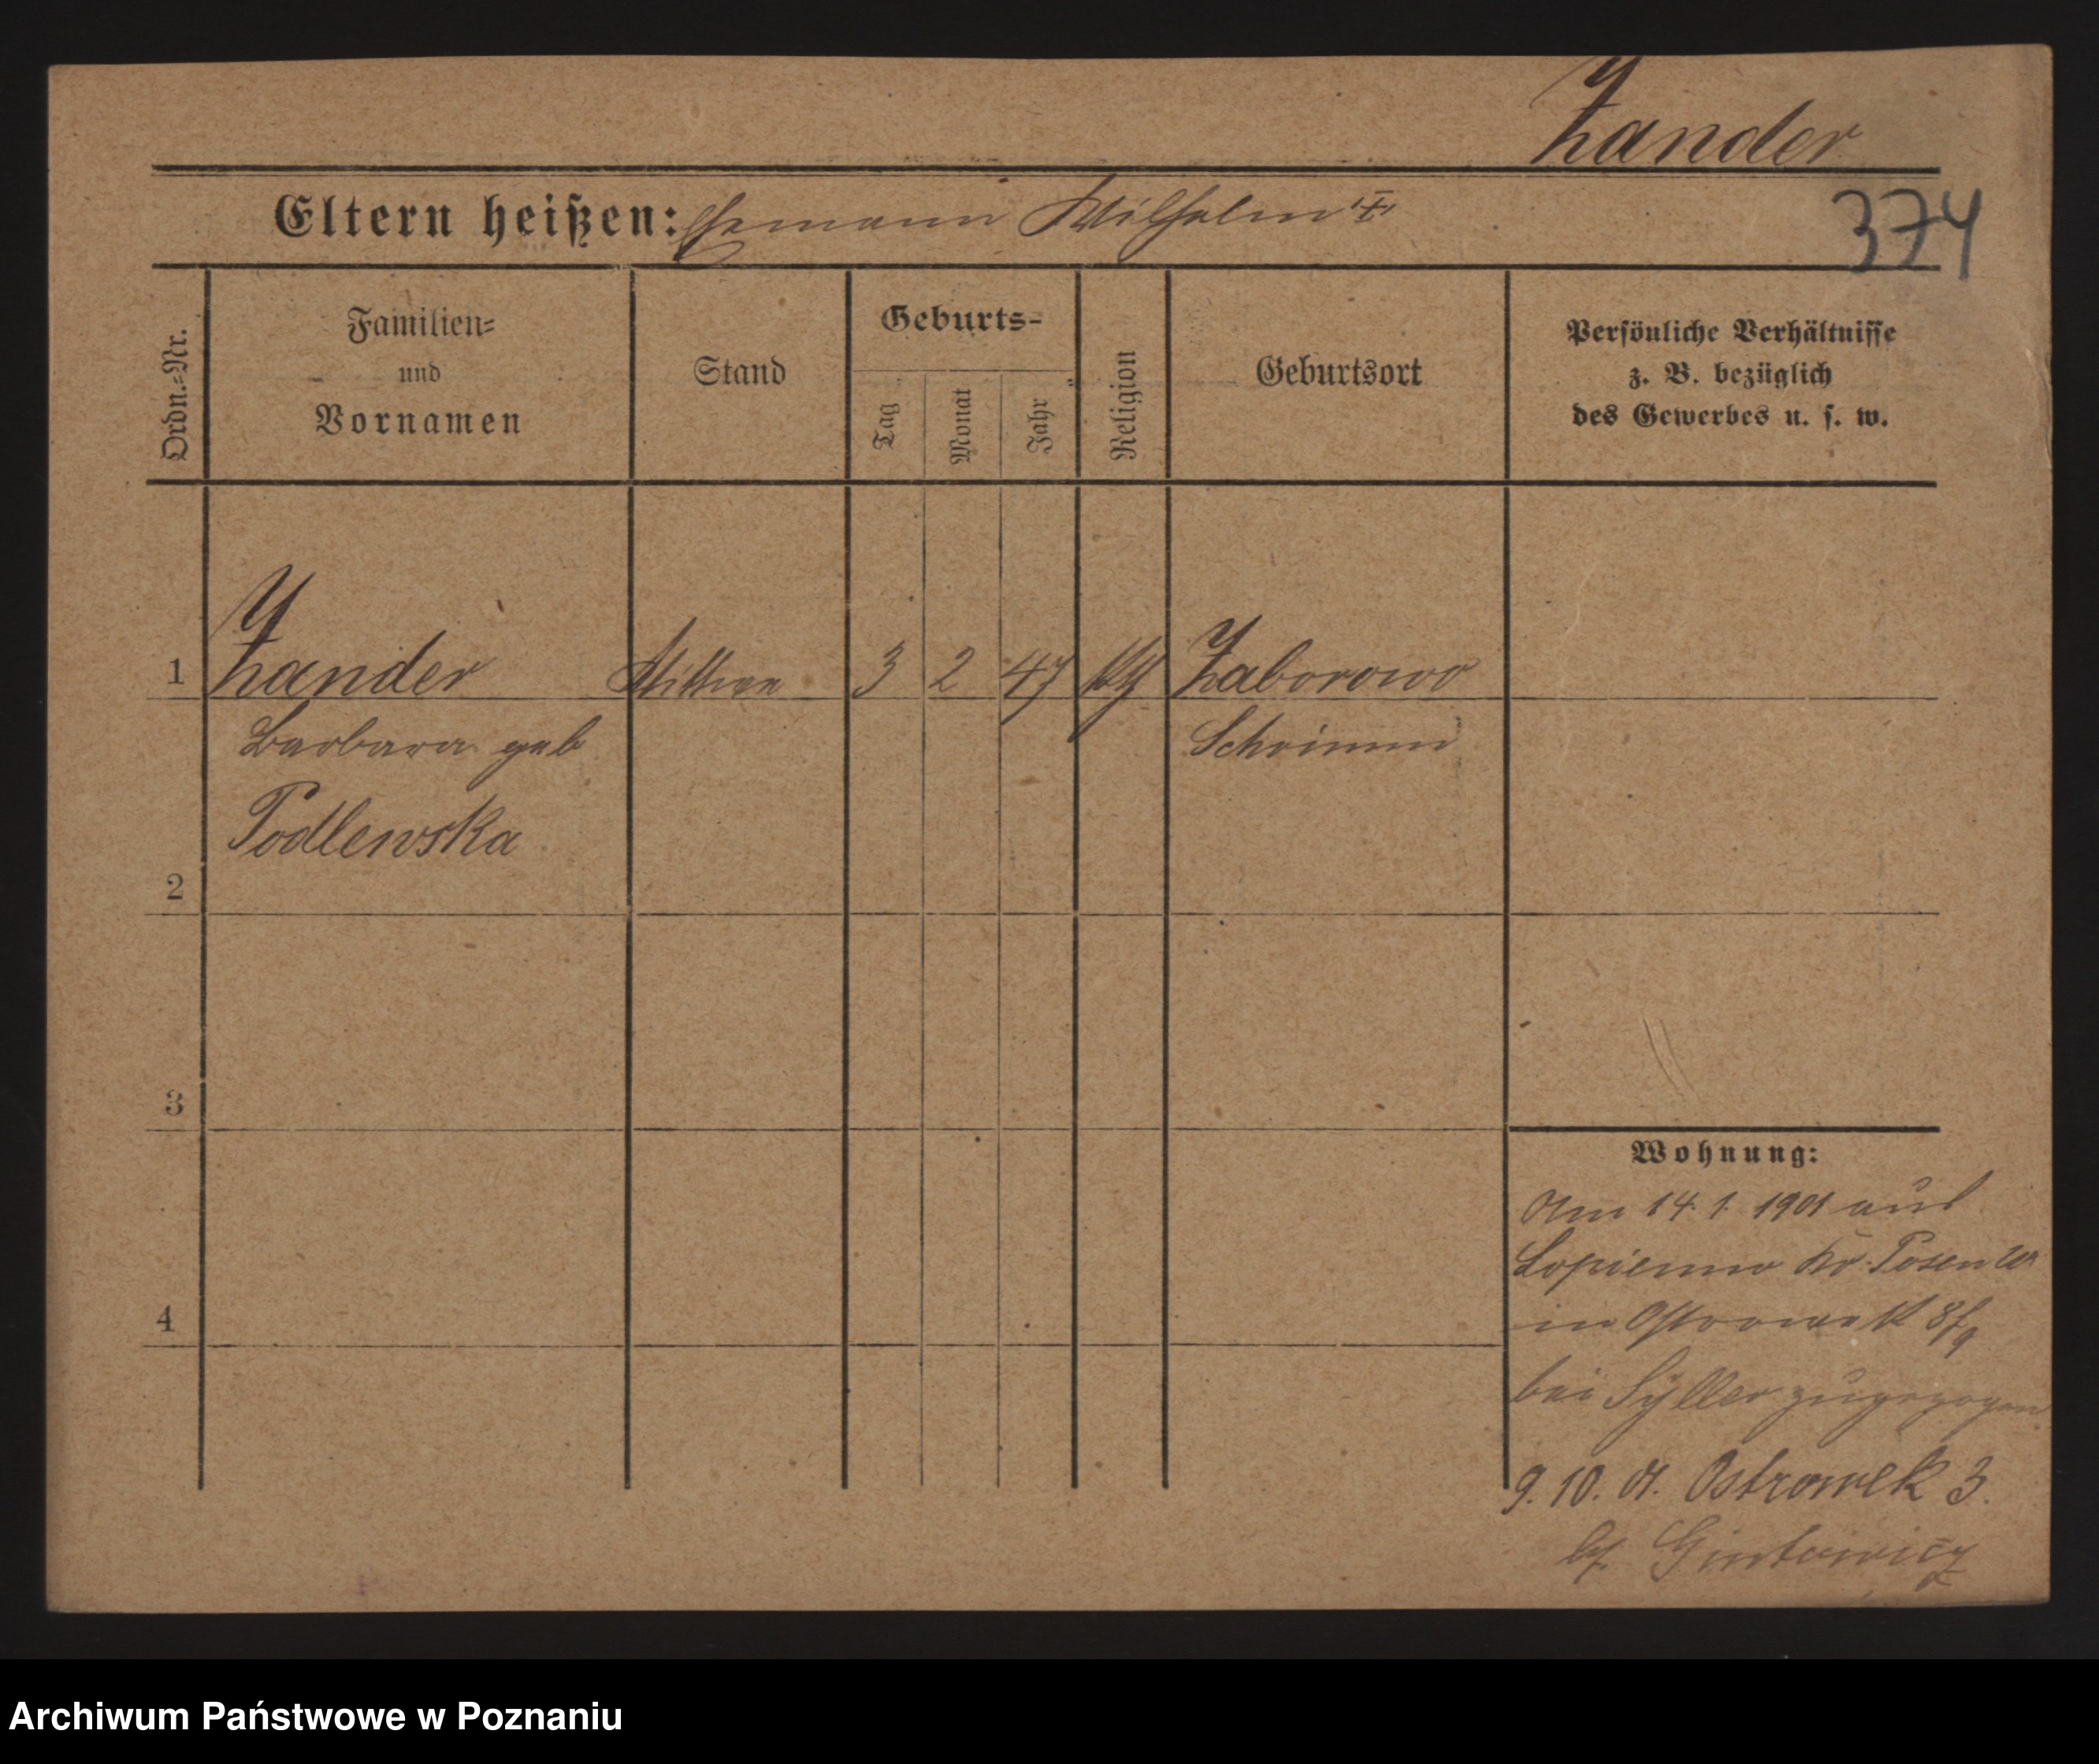 Zander
Eltern heißen: Ehemann Wilhelm †
374
Ordn.-Nr.
Familien-
und
Vornamen
Stand
Geburts-
Tag
Monat
Jahr
Religion
Geburtsort
Persönliche Verhältnisse
z. B. bezüglich
des Gewerbes u. s. w.
1 Zander Wittwe 3 2 47 kth Zaborowo
Barbara geb Schrimm
Podlewska
2
3
4
Wohnung:
Am 14. 1. 1901 aus
Lopienno Kr. Posen W.
in Ostrowek 8/9
bei Syller zugezogen
9. 10. 01. Ostrowek 3.
bf. Gintowicz
Archiwum Państwowe w Poznaniu